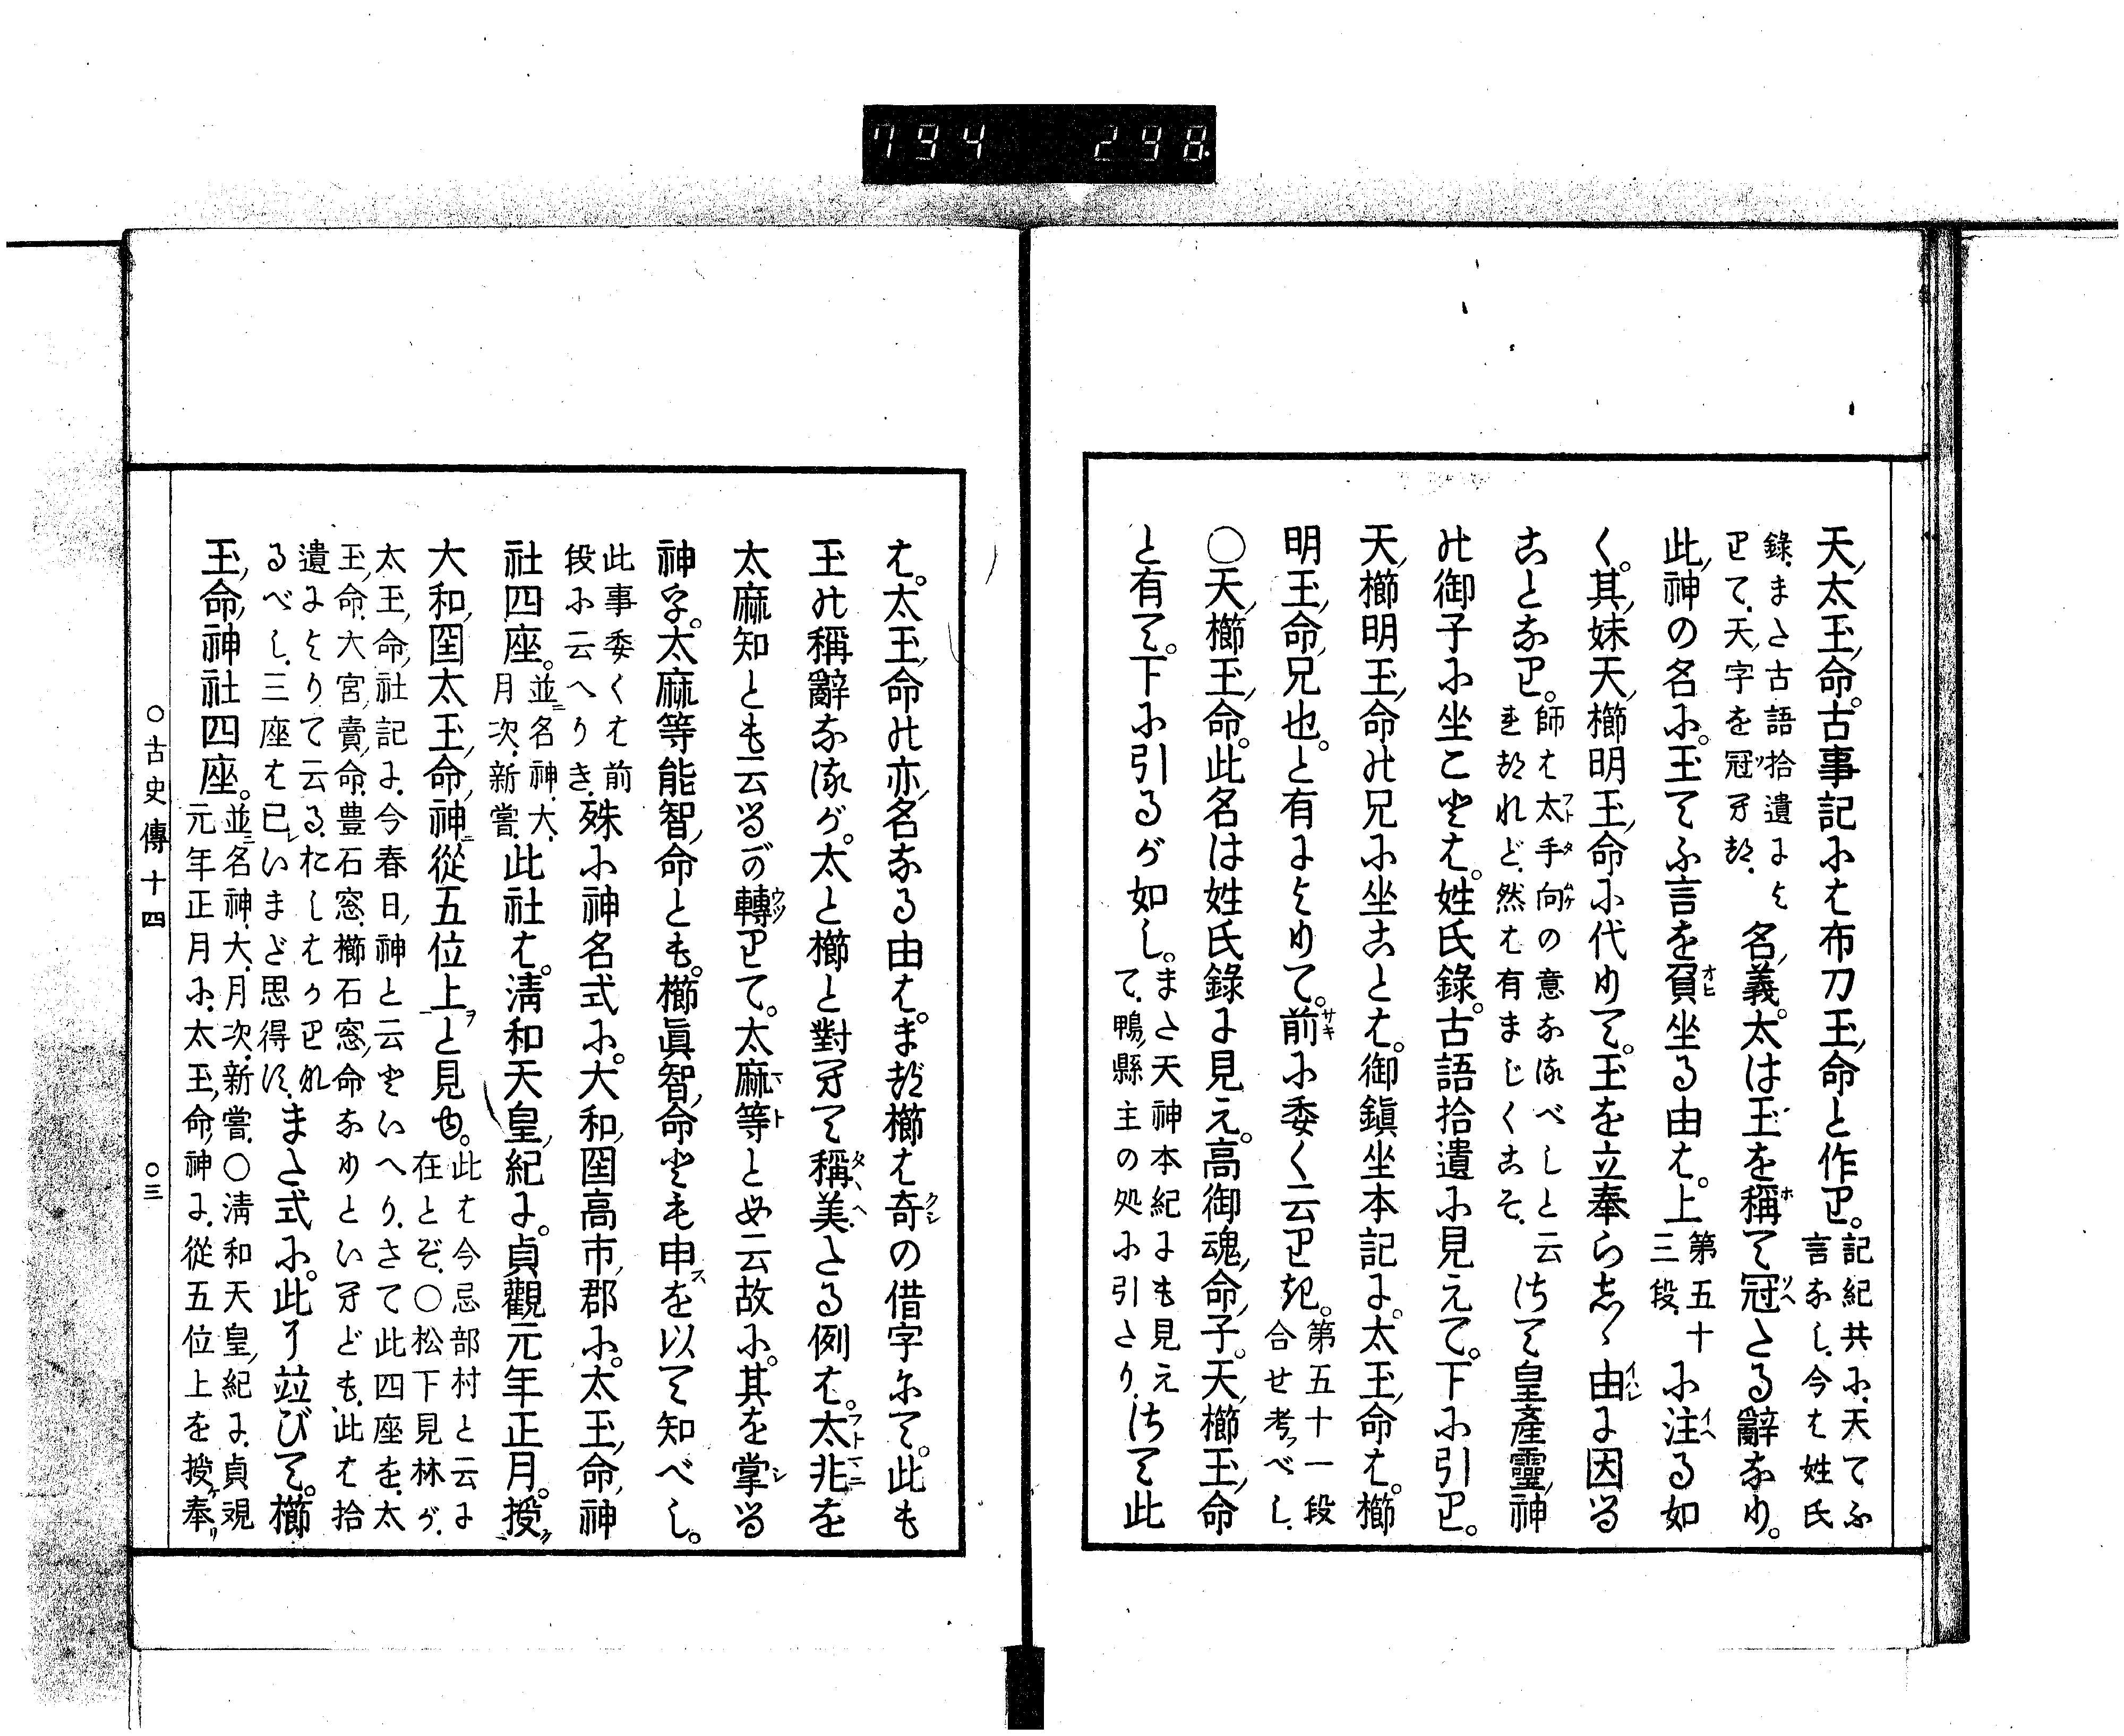 794 298.
天太玉命。古事記ふは布刀玉命と作り。記紀共ふ、天てふ
言なし、今は姓氏
錄、また古語拾遺によ
りて、天字を冠つ 名義。太は玉を稱て冠たる辭なり。
此神の名ふ。玉てふ言を負坐る由は。上第五十
三段、ふ注る如
く。其妹天櫛明玉命ふ代りて。玉を立奉らしゝ由に因る
ことなり。師は太手向の意なるべしと云
れど、然は有まじくこそ、さて皇產靈神
の御子ふ坐ことは。姓氏錄。古語拾遺ふ見えて。下ふ引り。
天櫛明玉命の兄ふ坐ことは。御鎭坐本記に。太玉命は。櫛
明玉命兄也。と有によりて。前ふ委く云りき。第五十一段
合せ考べし、
○天櫛玉命。此名は姓氏錄に見え。高御魂命子。天櫛玉命
と有て。下ふ引るが如し。また天神本紀にも見え
て、鴨縣主の処ふ引たり、さて此
は。太玉命の亦名なる由は。まづ櫛は奇の借字ふて。此も
玉の稱辭なるが。太と櫛と對へて稱美たる例は。太兆を
太麻知とも云るが轉りて。太麻等とも云故ふ。其を掌る
神を。太麻等能智命とも。櫛眞智命とも申を以て知べし。
此事委くは前
段ふ云へりき、殊ふ神名式ふ。大和国高市郡ふ。太玉命神
社四座。並名神、大、
月次、新嘗、此社は。淸和天皇紀に。貞觀元年正月。授
大和国太玉命神從五位上と見ゆ。此は今忌部村と云に
在とぞ、○松下見林が、
太玉命社記に、今春日神と云といへり、さて此四座を、太
玉命、大宮賣命、豊石窓、櫛石窓命なりといへども、此は拾
遺によりて云る、おしはかりな
るべし、三座は已いまだ思得ず、また式ふ。此に竝びて。櫛
玉命神社四座。並名神、大、月次、新嘗、○淸和天皇紀に、貞觀
元年正月ふ、太玉命神に、從五位上を授奉
○古史傳十四 ○三